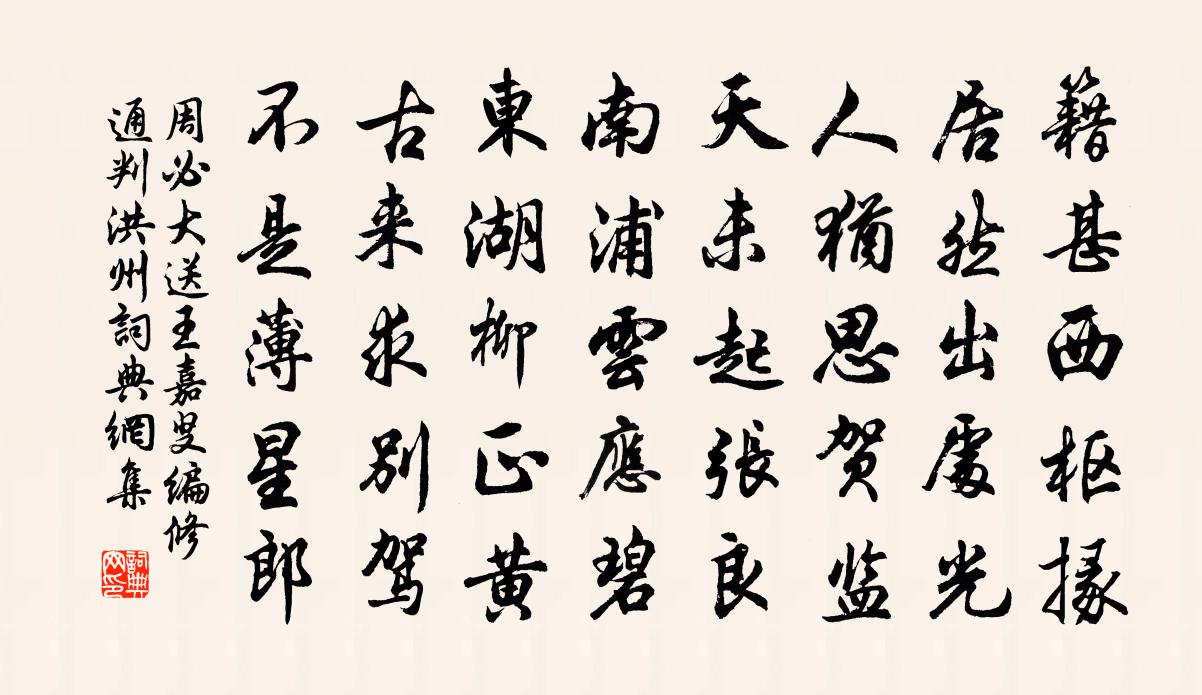 籍甚西枢掾
居然出處光
人猶思贺监
天未起張良
南浦雲應碧
東湖柳正黄
古来求别駕
不是薄星郎
周必大送王嘉叟编修
通判洪州詞典網集
詞典网印